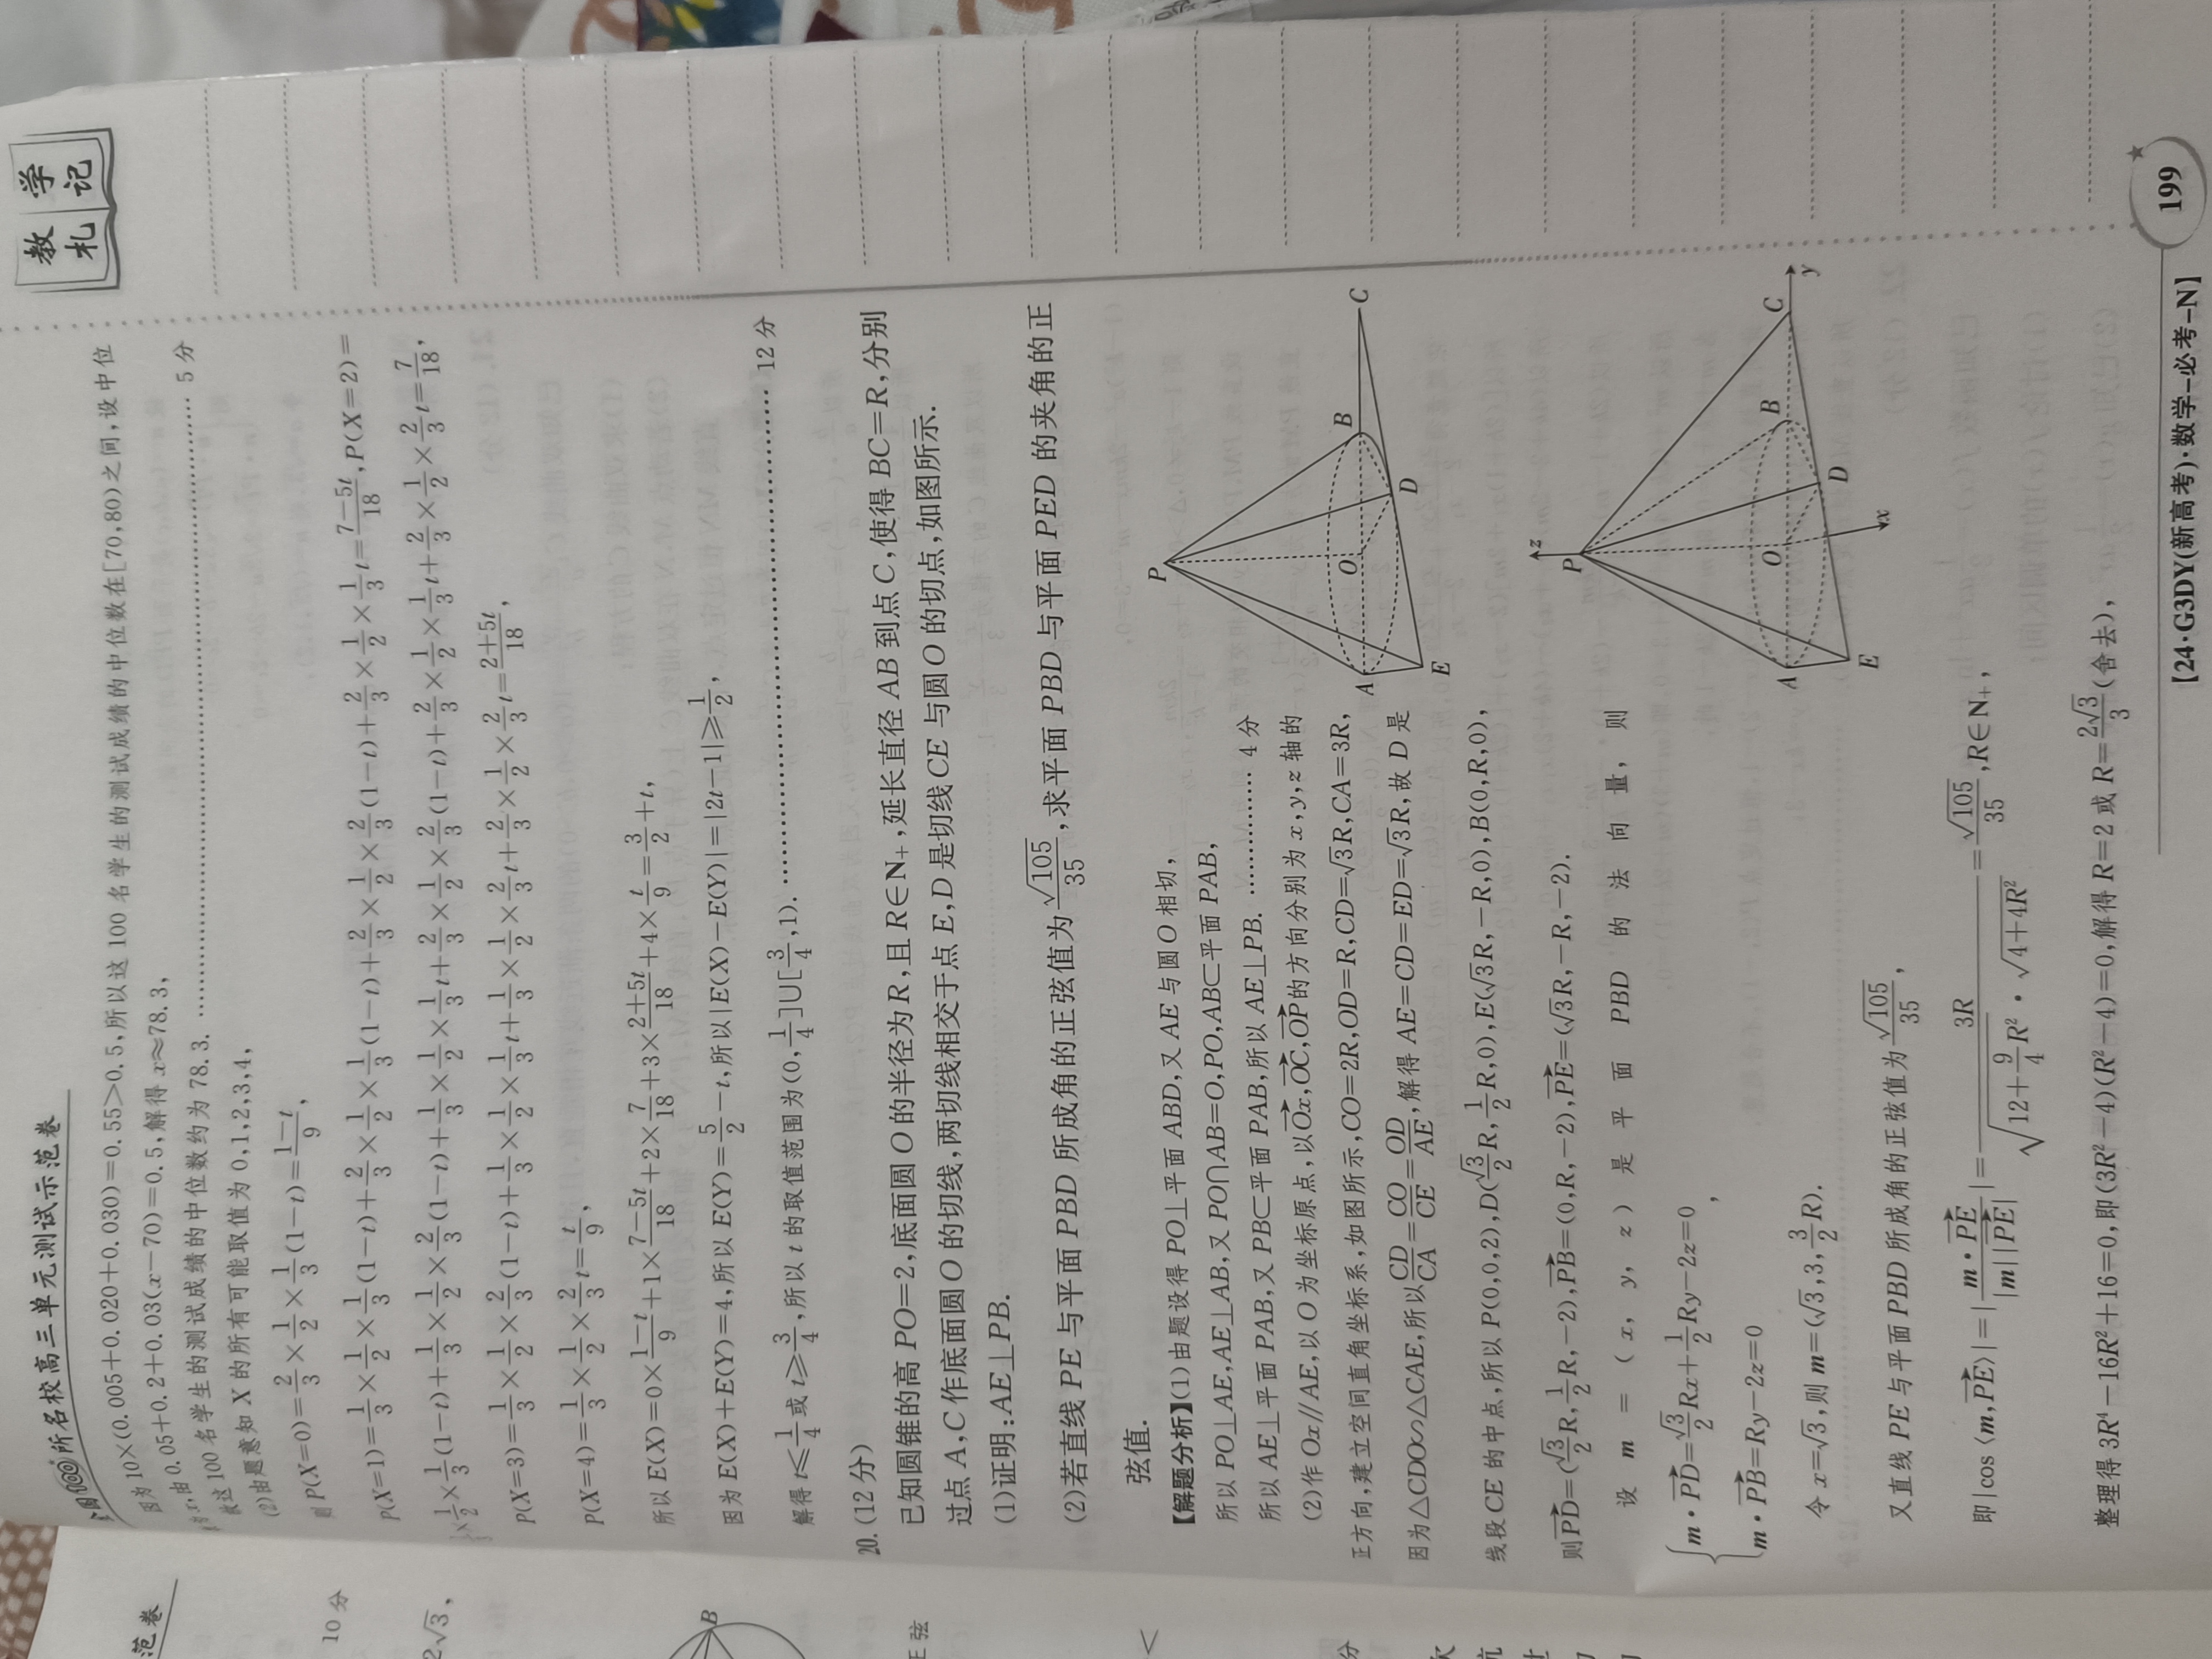 教学
札记
所名校高三单元测试示范卷
因为10×(0.005+0.020+0.030)=0.55>0.5,所以这100名学生的测试成绩的中位数在[70,80)之间,设中位
x,由0.05+0.2+0.03(x-70)=0.5,解得x≈78.3,
这100名学生的测试成绩的中位数约为78.3. …… 5分
(2)由题意知X的所有可能取值为0,1,2,3,4,
则P(X=0)=2/3×1/2×1/3(1-t)=(1-t)/9,
P(X=1)=1/3×1/2×1/3(1-t)+2/3×1/2×1/3(1-t)+2/3×1/2×2/3(1-t)+2/3×1/2×1/3t=(7-5t)/18,P(X=2)=
×1/2×1/3(1-t)+1/3×1/2×2/3(1-t)+1/3×1/2×1/3t+2/3×1/2×2/3(1-t)+2/3×1/2×1/3t+2/3×1/2×2/3t=7/18,
P(X=3)=1/3×1/2×2/3(1-t)+1/3×1/2×1/3t+1/3×1/2×2/3t+2/3×1/2×2/3t=(2+5t)/18,
P(X=4)=1/3×1/2×2/3t=t/9,
所以E(X)=0×(1-t)/9+1×(7-5t)/18+2×7/18+3×(2+5t)/18+4×t/9=3/2+t,
因为E(X)+E(Y)=4,所以E(Y)=5/2-t,所以|E(X)-E(Y)|=|2t-1|≥1/2,
解得t≤1/4或t≥3/4,所以t的取值范围为(0,1/4]∪[3/4,1). …… 12分
20.(12分)
已知圆锥的高PO=2,底面圆O的半径为R,且R∈N₊,延长直径AB到点C,使得BC=R,分别
过点A,C作底面圆O的切线,两切线相交于点E,D是切线CE与圆O的切点,如图所示.
(1)证明:AE⊥PB.
(2)若直线PE与平面PBD所成角的正弦值为√105/35,求平面PBD与平面PED的夹角的正
弦值.
P
A
O
B
C
D
E
【解题分析】(1)由题设得PO⊥平面ABD,又AE与圆O相切,
所以PO⊥AE,AE⊥AB,又PO∩AB=O,PO,AB⊂平面PAB,
所以AE⊥平面PAB,又PB⊂平面PAB,所以AE⊥PB. …… 4分
(2)作Ox∥AE,以O为坐标原点,以Ox→,OC→,OP→的方向分别为x,y,z轴的
正方向,建立空间直角坐标系,如图所示,CO=2R,OD=R,CD=√3R,CA=3R,
因为△CDO∽△CAE,所以CD/CA=CO/CE=OD/AE,解得AE=CD=ED=√3R,故D是
线段CE的中点,所以P(0,0,2),D(√3/2R,1/2R,0),E(√3R,-R,0),B(0,R,0),
则PD→=(√3/2R,1/2R,-2),PB→=(0,R,-2),PE→=(√3R,-R,-2).
设m=(x,y,z)是平面PBD的法向量,则
{m·PD→=√3/2Rx+1/2Ry-2z=0
m·PB→=Ry-2z=0,
z
P
A
O
B
C
y
D
E
x
令x=√3,则m=(√3,3,3/2R).
又直线PE与平面PBD所成角的正弦值为√105/35,
即|cos⟨m,PE→⟩|=|m·PE→/(|m||PE→|)|=3R/(√(12+9/4R²)·√(4+4R²))=√105/35,R∈N₊,
整理得3R⁴-16R²+16=0,即(3R²-4)(R²-4)=0,解得R=2或R=2√3/3(舍去),
199
【24·G3DY(新高考)·数学-必考-N】
范卷
10分
2√3,
B
正弦
<
分